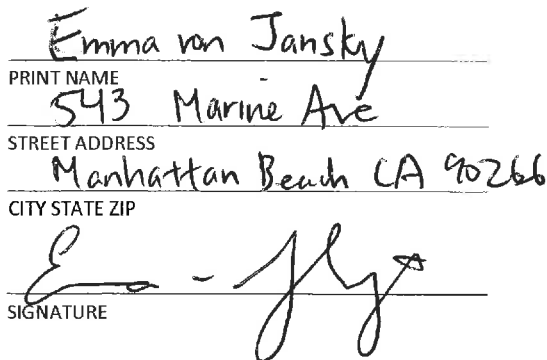 Emma von Jansky
PRINT NAME
543 Marine Ave
STREET ADDRESS
Manhattan Beach CA 90266
CITY STATE ZIP
SIGNATURE